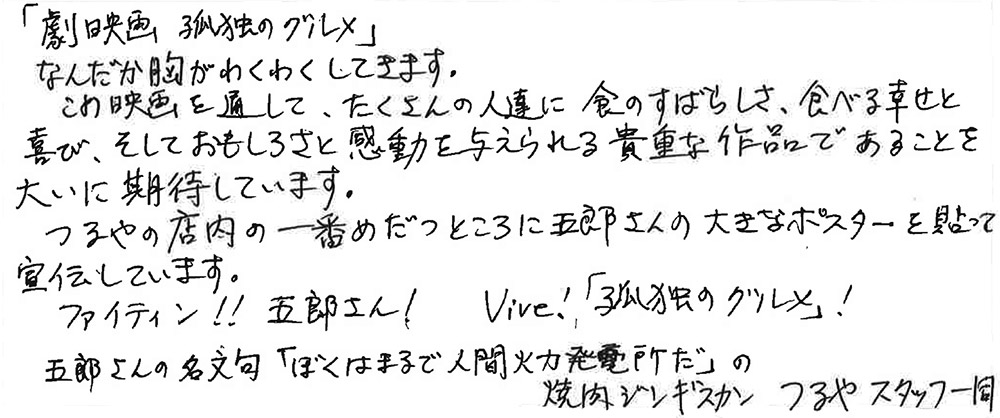 「劇映画 孤独のグルメ」
なんだか胸がわくわくしてきます。
この映画を通して、たくさんの人達に 食のすばらしさ、食べる幸せと
喜び、そしておもしろさと感動を与えられる貴重な作品であることを
大いに期待しています。
つるやの店内の一番めだつところに五郎さんの大きなポスターを貼って
宣伝しています。
ファイティン!! 五郎さん! Vive!「孤独のグルメ」!
五郎さんの名文句「ぼくはまるで人間火力発電所だ」の
焼肉ジンギスカン つるやスタッフ一同